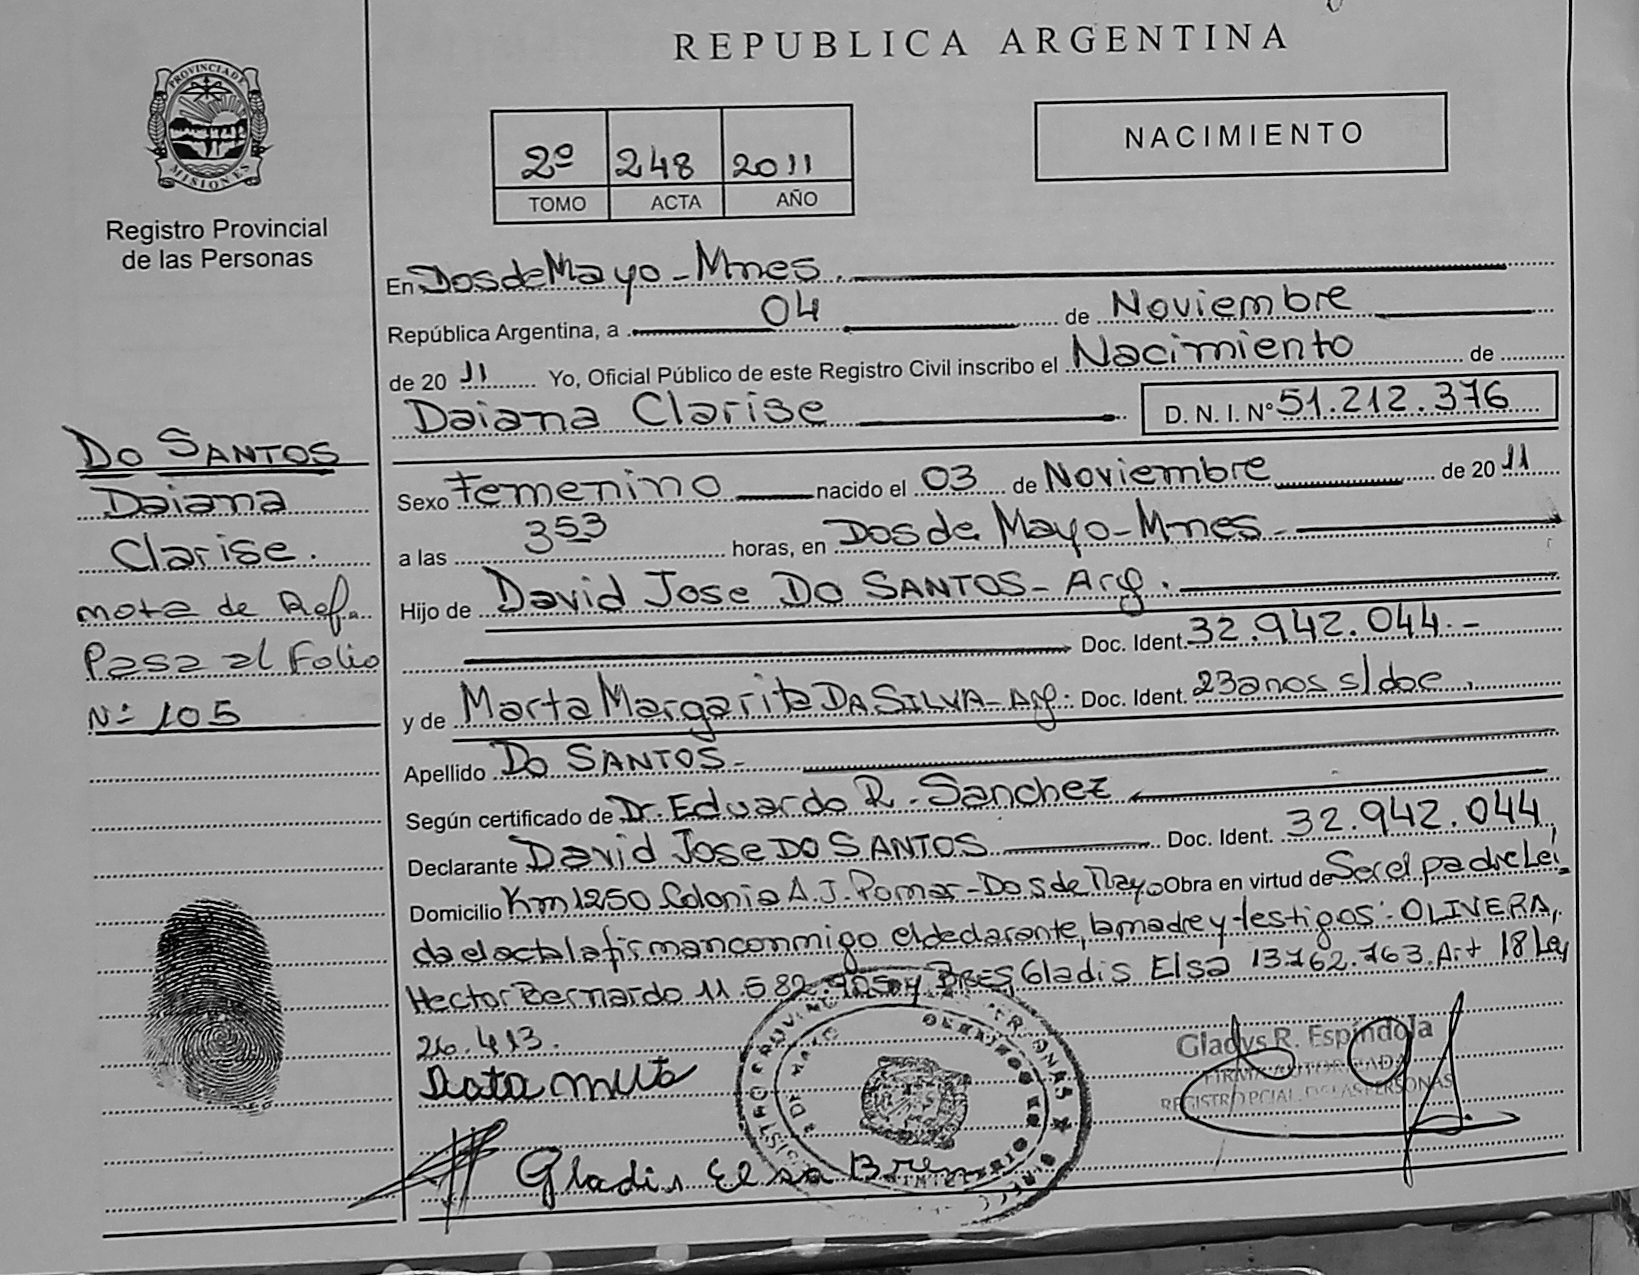 REPUBLICA ARGENTINA
PROVINCIA DE
MISIONES
Registro Provincial
de las Personas
2º 248 2011
TOMO ACTA AÑO
NACIMIENTO
En Dos de Mayo - Mnes
República Argentina, a 04 de Noviembre
de 20 11 Yo, Oficial Público de este Registro Civil inscribo el Nacimiento de
Daiana Clarise D. N. I. Nº 51.212.376
DO SANTOS
Daiana
Clarise.
nota de Ref.
Pasa al Folio
Nº 105
Sexo Femenino nacido el 03 de Noviembre de 20 11
a las 353 horas, en Dos de Mayo - Mnes -
Hijo de David Jose DO SANTOS - Arg.
Doc. Ident. 32.942.044.-
y de Marta Margarita DA SILVA - Arg. Doc. Ident. 23 anos s/doc.
Apellido DO SANTOS -
Según certificado de Dr. Eduardo R. Sanchez
Declarante David Jose DO SANTOS Doc. Ident. 32.942.044
Domicilio Km 1250 Colonia A. J. Pomar - Dos de Mayo Obra en virtud de Ser el padre Leí
da el acta la firman conmigo el declarante, la madre y testigos: OLIVERA,
Hector Bernardo 11.582. y Gladis Elsa 13.762.763. Art 18 Ley
26.413.
Gladys R. Espíndola
FIRMA AUTORIZADA
REGISTRO PCIAL. DE LAS PERSONAS
Gladis Elsa